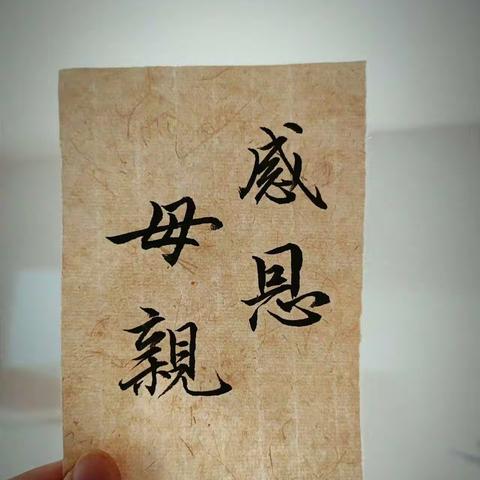 感恩
母親